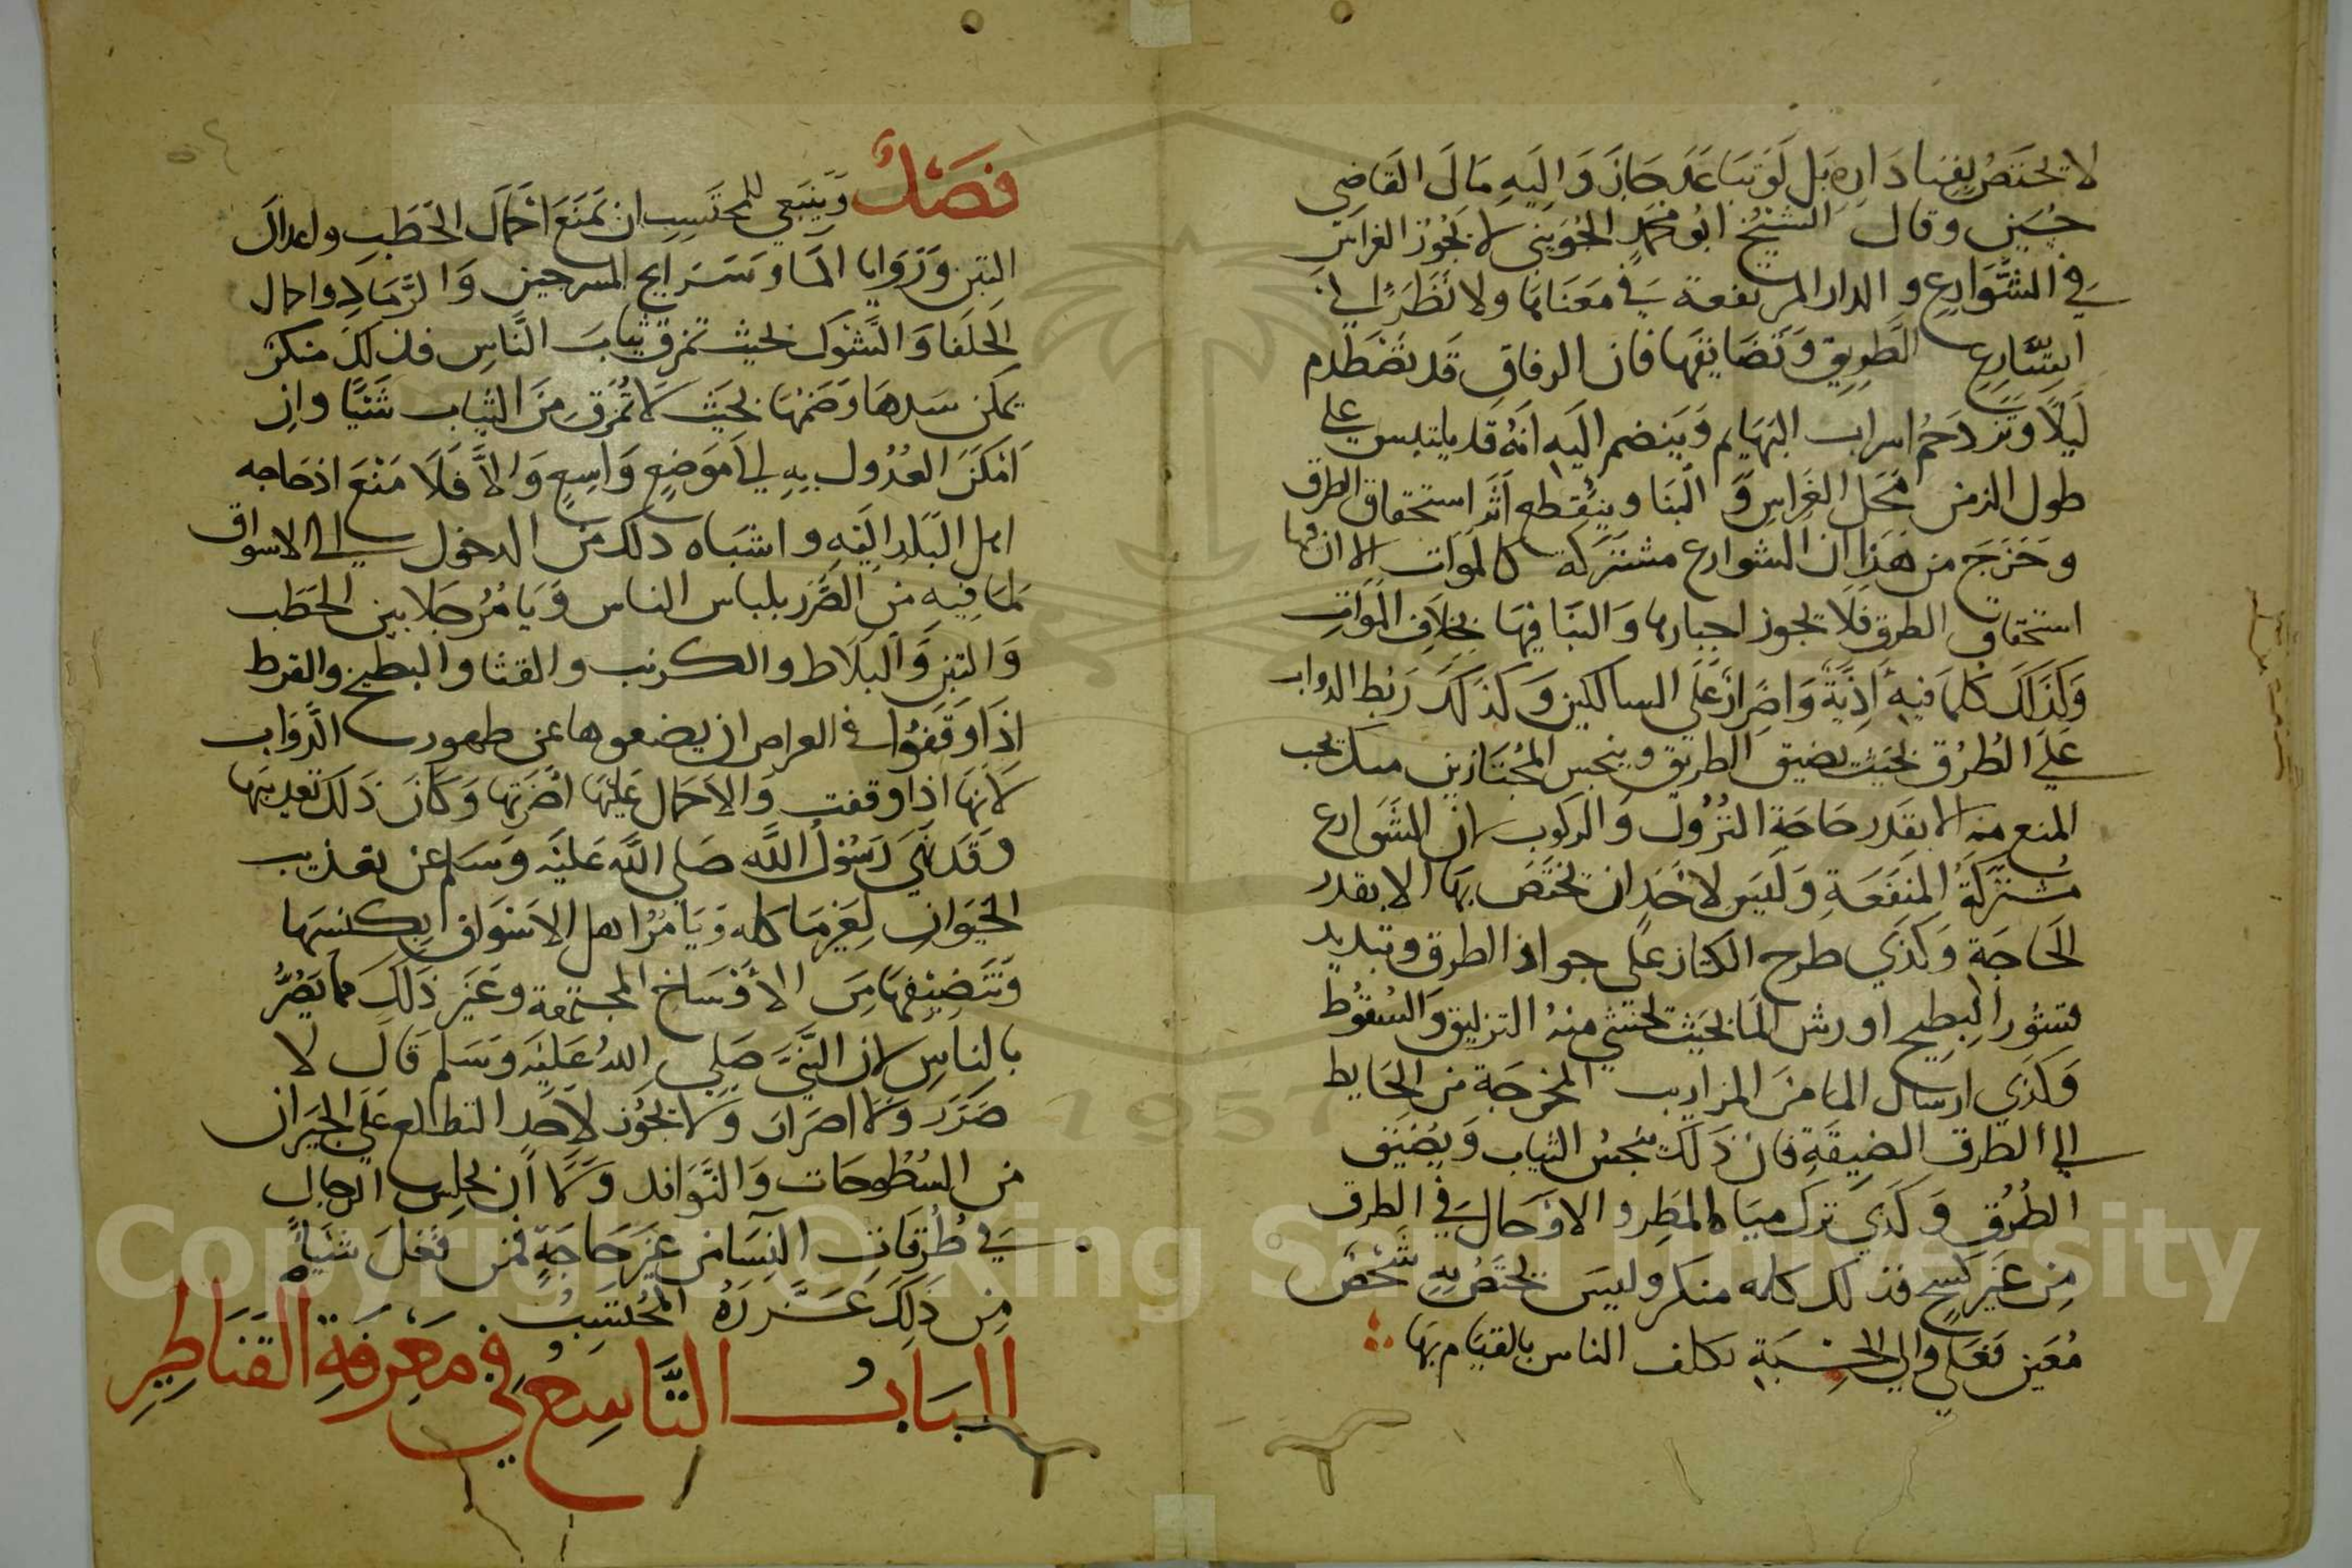 لا يختص بفنا داره بل لو تباعد جاز واليه مال القاضي
حسين وقال الشيخ ابو محمد الجويني لا يجوز الغراس
في الشوارع والدار المرتفعة في معناها ولا نظرا الي
اتساع الطريق وتضايقها فان الرفاق قد تضطدم
ليلا وتزدحم اسراب البهايم وينضم اليه انه قد يلتبس علي
طول الزمن محل الغراس والبنا وينقطع اثر استحقاق الطرق
وخرج من هذا ان الشوارع مشتركة كالموات الا ان فيها
استحقاق الطرق فلا يجوز احيارها والبنا فيها بخلاف الموات
وكذلك كلما فيه اذية واضرار علي السالكين وكذلك ربط الدواب
علي الطرق بحيث يضيق الطريق وينجس المجتازين منكر يجب
المنع منه الا بقدر حاجة النزول والركوب لان الشوارع
مشتركة المنفعة وليس لاحد ان يختص بها الا بقدر
الحاجة وكذي طرح الكناز علي جواد الطرق وتبديد
قشور البطيح او رش الما بحيث يخشي منه التزليق والسقوط
وكذي ارسال الما من المزاريب المخرجة من الحايط
الي الطرق الضيقة فان ذلك ينجس الثياب ويضيق
الطرق وكذي ترك مياه المطر والاوحال في الطرق
من غير كسح فذلك كله منكر وليس يختص به شخص
معين فعلي والي الحسبة يكلف الناس بالقيام بها
فصل وينبغي للمحتسب ان يمنع احمال الحطب واعدال
التبن وروايا الماء وسرايج السرجين والرماد واحمال
الحلفا والشوك بحيث تمزق ثياب الناس فذلك منكر
يمكن سدها وضمها بحيث لا تمزق من الثياب شيئا وان
امكن العدول به الي موضع واسع والا فلا منع اذ حاجه
اهل البلد اليه واشباه ذلك من الدخول الي الاسواق
لما فيه من الضرر بلباس الناس ويامر جلابين الحطب
والتبن والبلاط والكرنب والقثا والبطيخ والقرط
اذا وقفوا في العراص ان يضعوها عن ظهور الدواب
لانها اذا وقفت والاحمال عليها اضرتها وكان ذلك تعذيبها
وقد نهي رسول الله صلى الله عليه وسلم عن تعذيب
الحيوان لغير ما كله ويامر اهل الاسواق بكنسها
وتنضيفها من الاوساخ المجتمعة وغير ذلك مما يضر
بالناس لان النبي صلي الله عليه وسلم قال لا
ضرر ولا اضرار ولا يجوز لاحد التطالع علي الجيران
من السطوحات والنوافد ولا ان يجلس الرجال
في طرقات النسا من غير حاجة فمن فعل شيا
من ذلك عزره المحتسب
الباب التاسع في معرفة القناطير
Copyright © King Saud University
1957